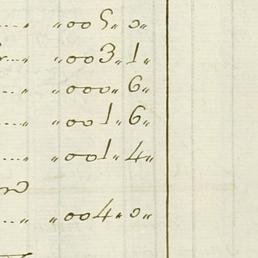 ....„ „005„0„
....„ „003„1„
....„ „000„6„
....„ „001„6„
....„ „001„4„
....„ „004„0„